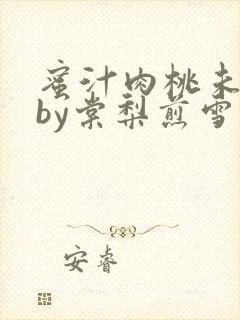 蜜汁肉桃未
by棠梨煎雪
安睿